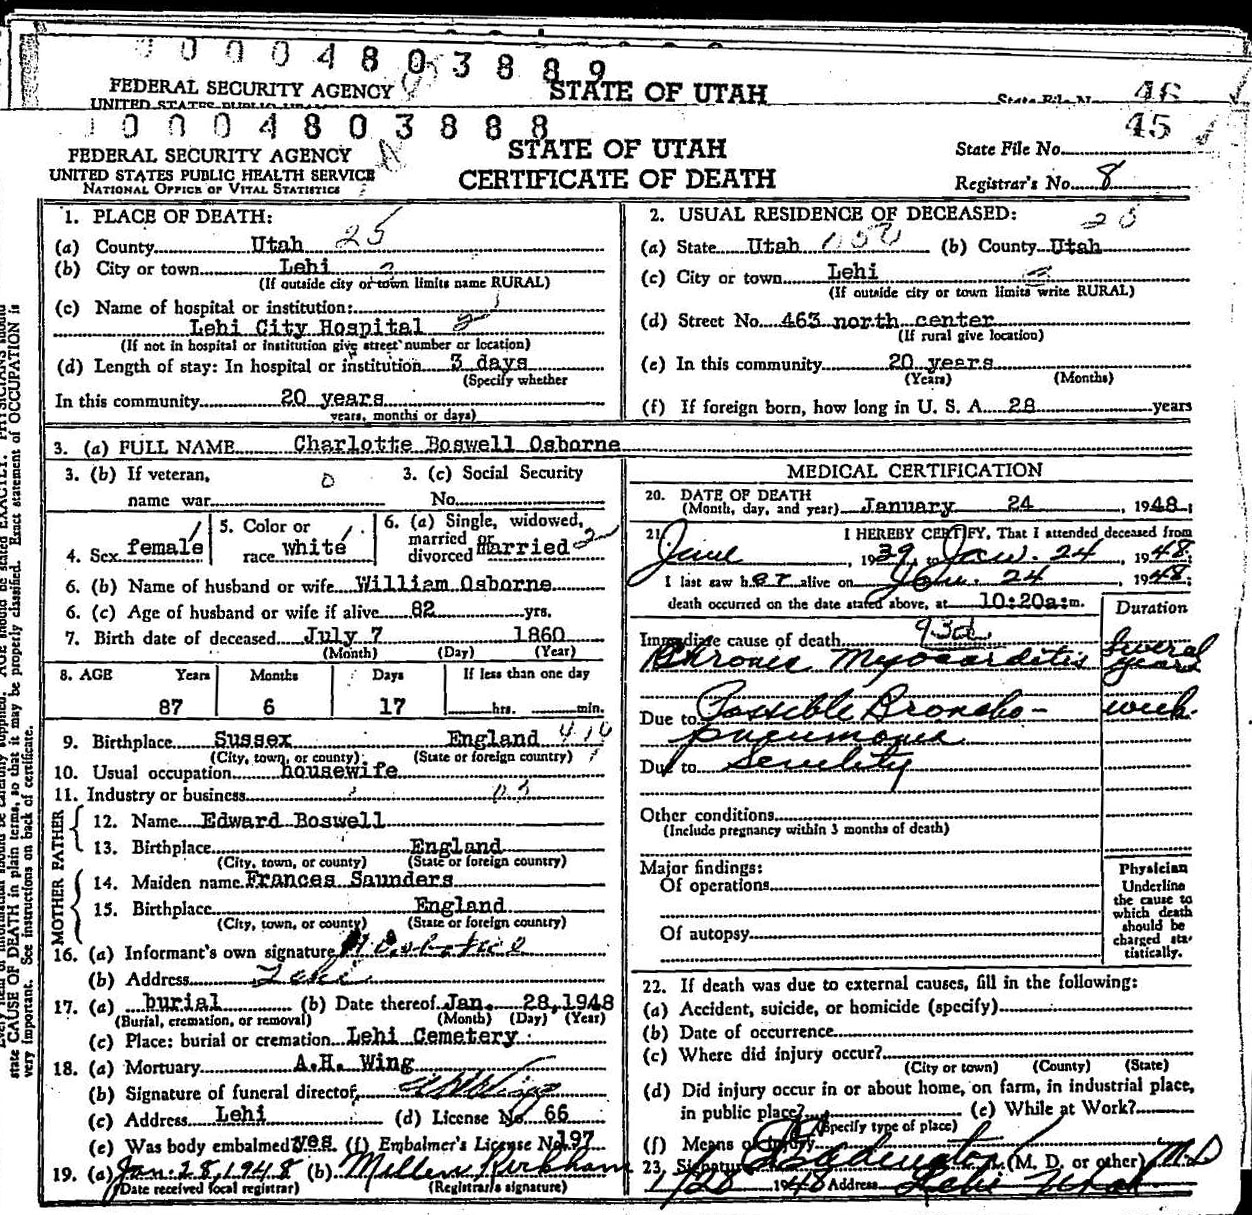 0 0 0 4 8 0 3 8 8 9
FEDERAL SECURITY AGENCY
STATE OF UTAH
46
0 0 0 4 8 0 3 8 8 8
45
FEDERAL SECURITY AGENCY
UNITED STATES PUBLIC HEALTH SERVICE
NATIONAL OFFICE OF VITAL STATISTICS
STATE OF UTAH
CERTIFICATE OF DEATH
State File No.
Registrar's No. 8
1. PLACE OF DEATH: 25
(a) County Utah
(b) City or town Lehi
(If outside city or town limits name RURAL)
(c) Name of hospital or institution:
Lehi City Hospital
(If not in hospital or institution give street number or location)
(d) Length of stay: In hospital or institution 3 days
(Specify whether
In this community 20 years
years, months or days)
2. USUAL RESIDENCE OF DECEASED:
(a) State Utah (b) County Utah
(c) City or town Lehi
(If outside city or town limits write RURAL)
(d) Street No. 463 north center
(If rural give location)
(e) In this community 20 years
(Years) (Months)
(f) If foreign born, how long in U. S. A. 28 years
3. (a) FULL NAME Charlotte Boswell Osborne
3. (b) If veteran,
name war
3. (c) Social Security
No.
4. Sex female
5. Color or
race white
6. (a) Single, widowed,
married or
divorced married 2
6. (b) Name of husband or wife William Osborne
6. (c) Age of husband or wife if alive 82 yrs.
7. Birth date of deceased July 7 1860
(Month) (Day) (Year)
8. AGE Years Months Days If less than one day
87 6 17 hrs. min.
9. Birthplace Sussex England
(City, town, or county) (State or foreign country)
10. Usual occupation housewife
11. Industry or business
FATHER
12. Name Edward Boswell
13. Birthplace England
(City, town, or county) (State or foreign country)
MOTHER
14. Maiden name Frances Saunders
15. Birthplace England
(City, town, or county) (State or foreign country)
16. (a) Informant's own signature
(b) Address Lehi
17. (a) burial (b) Date thereof Jan. 28, 1948
(Burial, cremation, or removal) (Month) (Day) (Year)
(c) Place: burial or cremation Lehi Cemetery
18. (a) Mortuary A.H. Wing
(b) Signature of funeral director
(c) Address Lehi (d) License No. 66
(e) Was body embalmed? yes (f) Embalmer's License No. 197
19. (a) Jan. 28, 1948 (b)
(Date received local registrar) (Registrar's signature)
MEDICAL CERTIFICATION
20. DATE OF DEATH
(Month, day, and year) January 24, 1948;
21. I HEREBY CERTIFY, That I attended deceased from
June, 1939, to Jan. 24 1948;
I last saw her alive on Jan. 24 1948;
death occurred on the date stated above, at 10:20a:m.
Duration
Immediate cause of death 93d
Chronic Myocarditis Several years
Due to Possible Broncho- week.
pneumonia
Due to Senility
Other conditions
(Include pregnancy within 3 months of death)
Major findings:
Of operations
Of autopsy
Physician
Underline
the cause to
which death
should be
charged sta-
tistically.
22. If death was due to external causes, fill in the following:
(a) Accident, suicide, or homicide (specify)
(b) Date of occurrence
(c) Where did injury occur?
(City or town) (County) (State)
(d) Did injury occur in or about home, on farm, in industrial place,
in public place? (e) While at Work?
(Specify type of place)
(f) Means of injury
23. Signature (M. D. or other) M D
1/28 1948 Address Lehi Utah
state CAUSE OF DEATH in plain terms, so that it may be properly classified. Exact statement of OCCUPATION is
very important. See instructions on back of certificate.